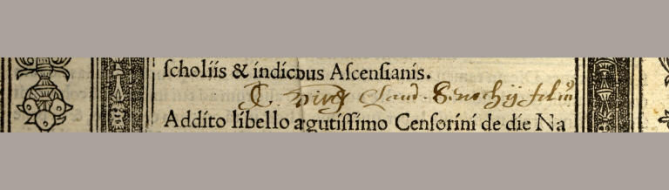 scholiis & indicbus Ascensianis.
Claud. filiũ
Addito libello agutissimo Censorini de die Na